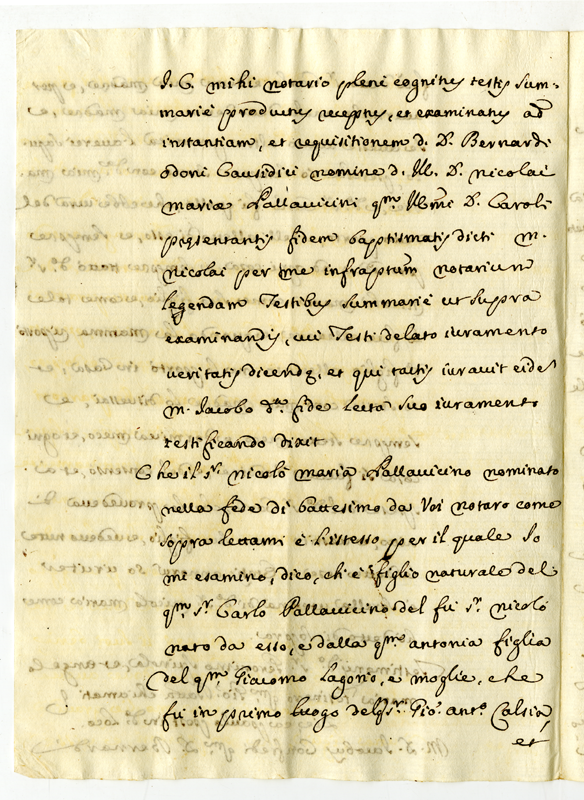 I. C. mihi notario pleni cognitus testis sum-
marie productus receptus, et examinatus ad
instantiam, et requisitionem d. D. Bernardi
Odoni Causidici nomine d. Ill. D. Nicolai
Mariæ Pallavicini qm. Illmi D. Caroli
presentantis fidem baptismatis dicti m.
Nicolai per me infrascriptum notarium
legendam Testibus summarie ut supra
examinandis, cui Testi delato iuramento
veritatis dicendę, et qui tactis iuravit eidem
m. Jacobo dta fide lecta suo iuramento
testificando dixit
Che il sr. Nicolò Maria Pallavicino nominato
nella fede di battesimo da Voi notaro come
sopra lettami è l'istesso per il quale Io
mi esamino, dico, che è figlio naturale del
qm. sr. Carlo Pallavicino del fu sr. Nicolò
nato da esso, e dalla qm. Antonia figlia
del qm. Giacomo Lagorio, e moglie, che
fu in primo luogo del sr. Gio. Anto. Calsia,
et